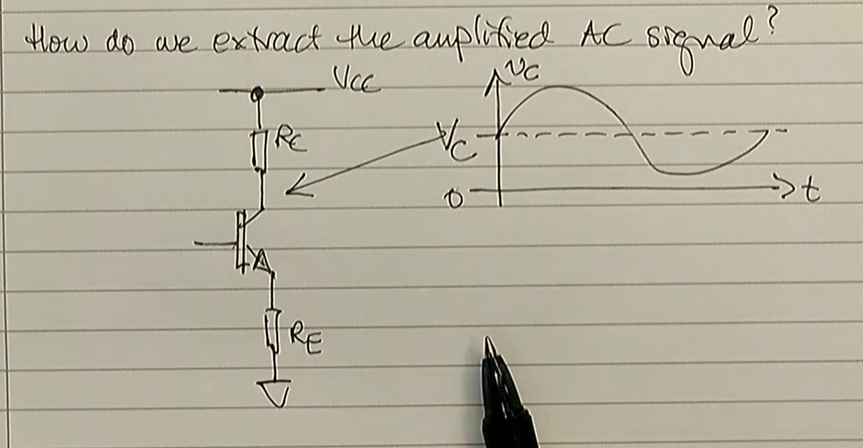 How do we extract the amplified AC signal?
VCC
RC
vC
VC
0
t
RE